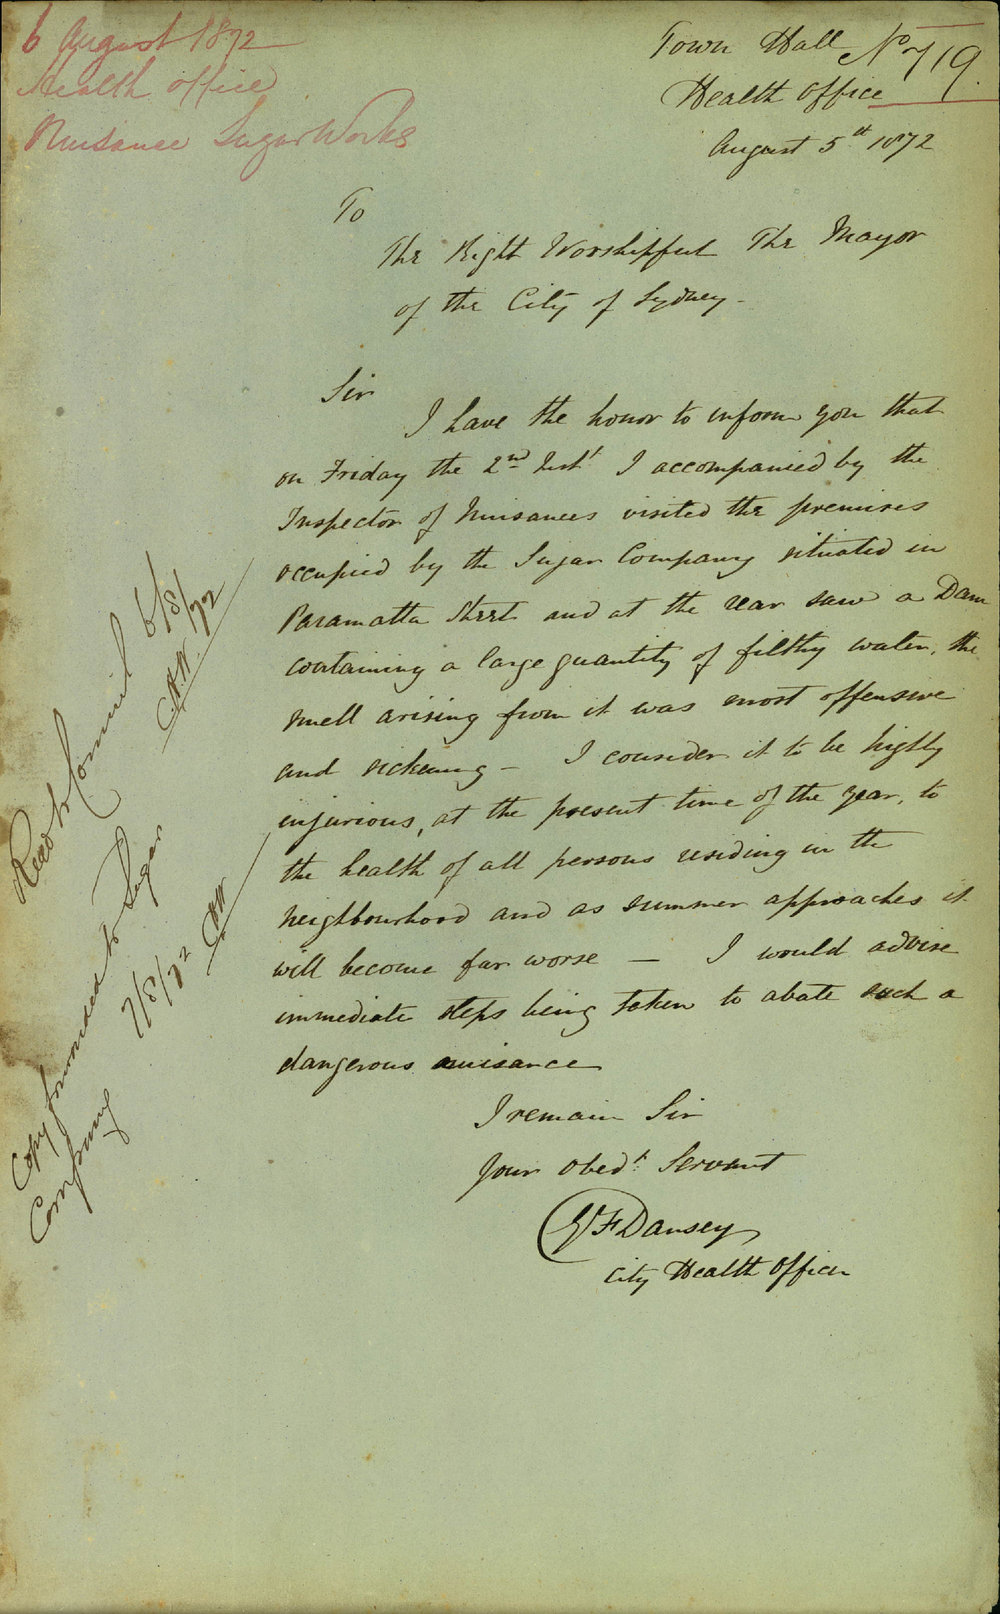 6 August 1872
Health office
Nuisance Sugar Works
Town Hall No 719.
Health Office
August 5th 1872
To
The Right Worshipful The Mayor
of the City of Sydney -
Sir
I have the honor to inform you that
on Friday the 2nd Inst I accompanied by the
Inspector of Nuisances visited the premises
occupied by the Sugar Company situated in
Paramatta Street and at the rear saw a Dam
containing a large quantity of filthy water, the
smell arising from it was most offensive
and sickening - I consider it to be highly
injurious, at the present time of the year, to
the health of all persons residing in the
neighbourhood and as summer approaches it
will become far worse - I would advise
immediate steps being taken to abate such a
dangerous nuisance
I remain Sir
Your Obedt Servant
GFDansey
City Health Officer
Read to Council 6/8/72
Copy forwarded to Sugar
Company 7/8/72